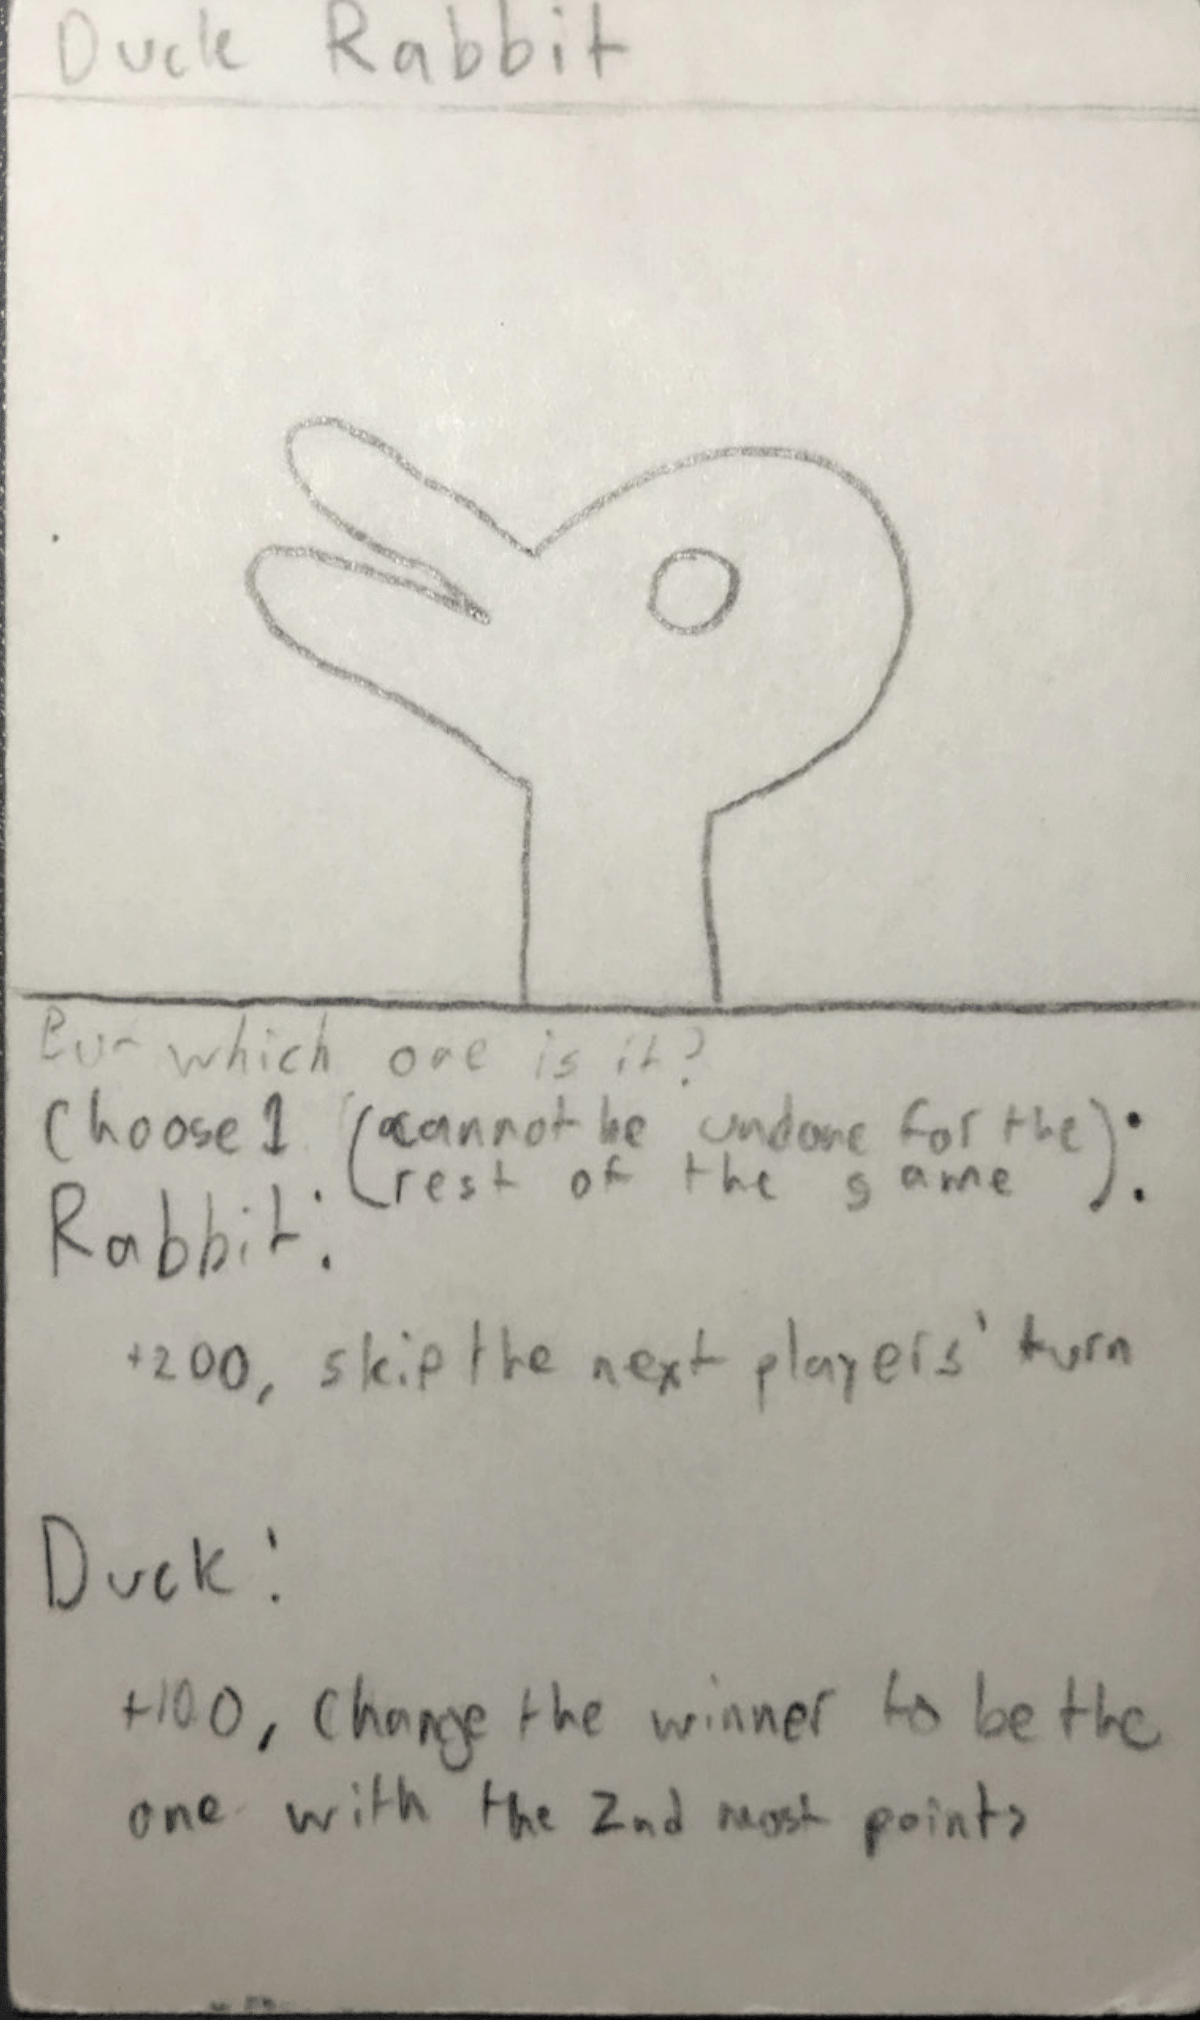 Duck Rabbit
But which one is it?
Choose 1 (cannot be undone for the
rest of the game):
Rabbit:
+200, skip the next players' turn
Duck:
+100, Change the winner to be the
one with the 2nd most points